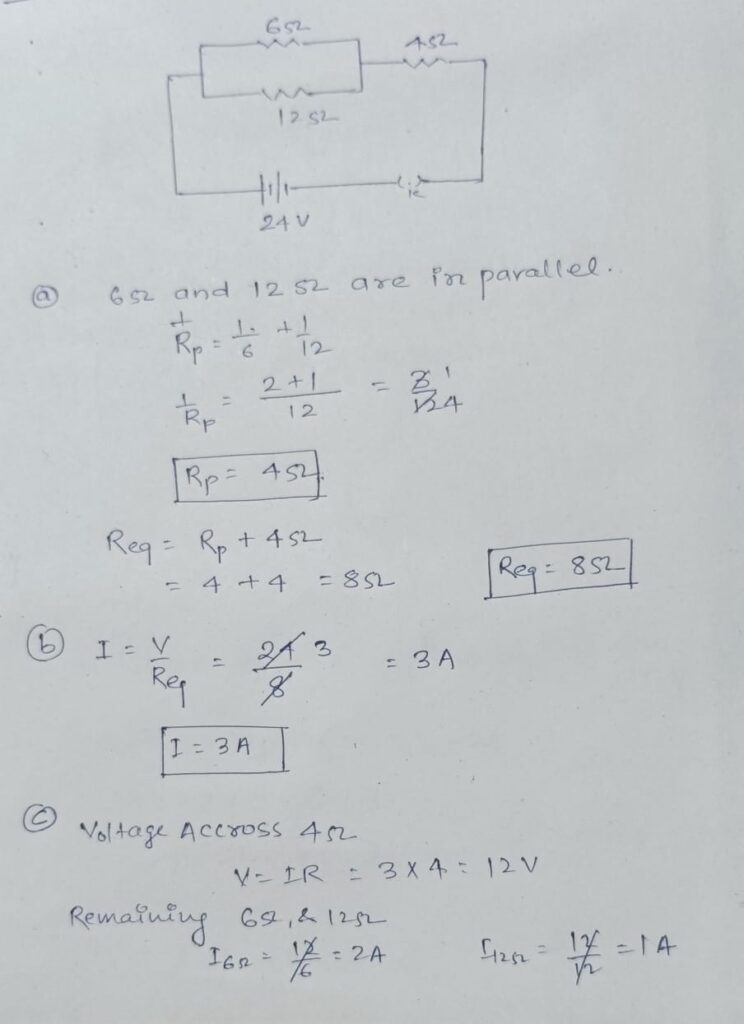 6Ω
4Ω
12Ω
24V
ⓐ 6Ω and 12Ω are in parallel.
1/Rp = 1/6 + 1/12
1/Rp = 2+1/12 = 3/12 1/4
Rp = 4Ω.
Req = Rp + 4Ω
= 4 + 4 = 8Ω
Req = 8Ω
ⓑ I = V/Req = 24/8 3 = 3A
I = 3A
ⓒ Voltage Accross 4Ω
V = IR = 3 x 4 = 12V
Remaining 6Ω, & 12Ω
I6Ω = 12/6 = 2A I12Ω = 12/12 = 1A